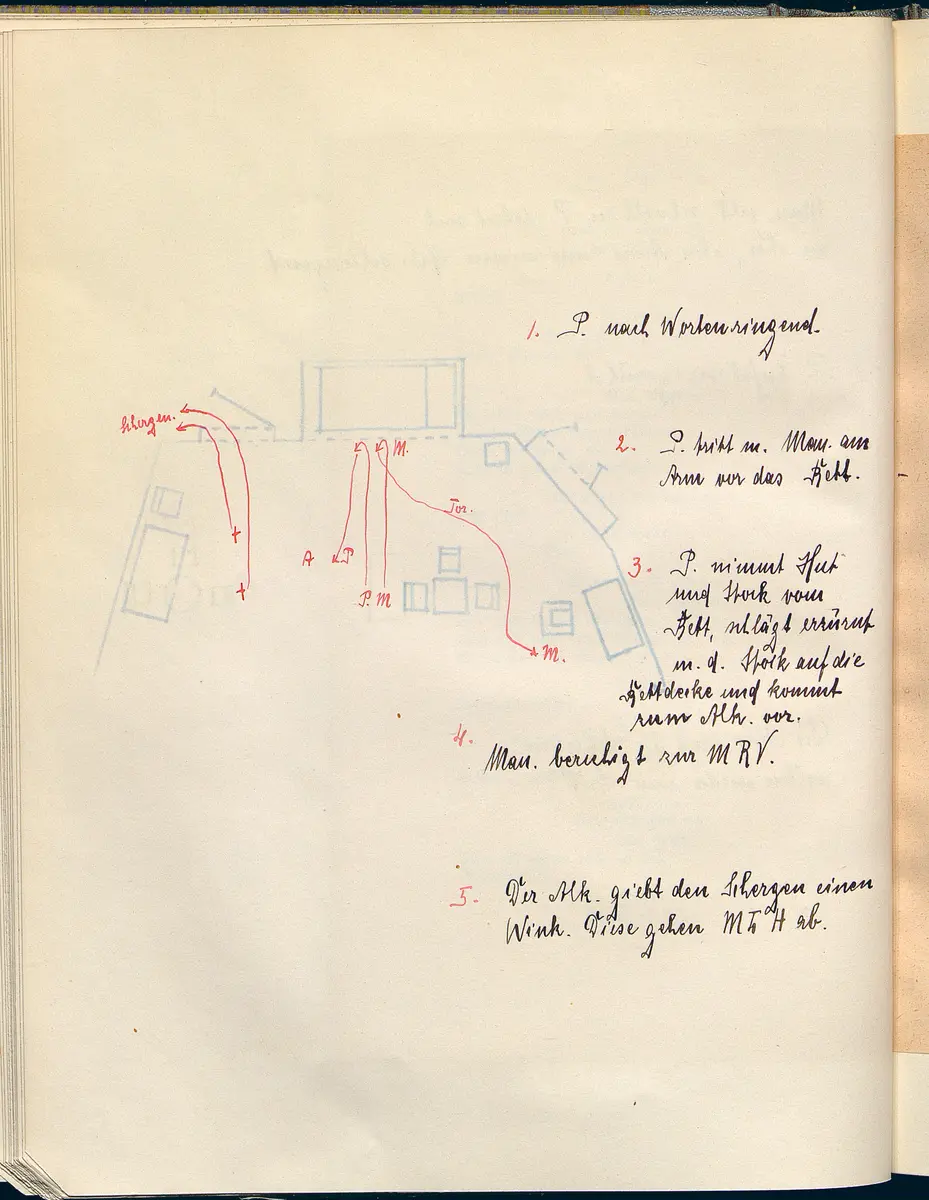 1. P. nach Worten ringend.
Schergen.
M.
2. P. tritt m. Man. am
Arm vor das Bett.
Tor.
A P
P. M
M.
3. P. nimmt Hut
und Stock vom
Bett, schlägt erzürnt
m. d. Stock auf die
Bettdecke und kommt
zum Alk. vor.
4.
Man. beruhigt zur MRV.
5. Der Alk. giebt den Schergen einen
Wink. Diese gehen MLH ab.